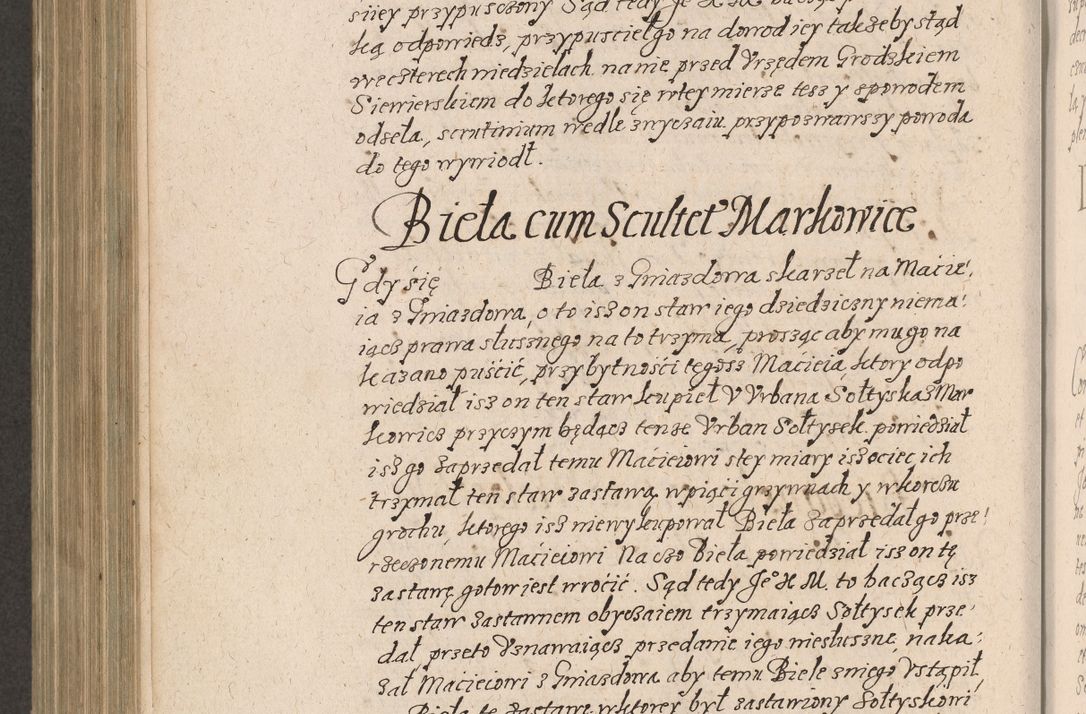 siiey przypusczony Sąd tedy Je° X M
ką odpowiedz, przypuscieł go na dowod iey takze by stąd
we czterech niedzielach na nie przed Vrzędem Grodzkiem
Siewierskiem do ktorego się w tey mierze tesz y z powodem
odseła, scrutinium wedle zwyczaiu przypozwawszy powoda
do tego wywiodł.
Bieła cum Scultet° Markowice
Gdy się Bieła z Gniazdowa skarzeł na Macie:
ia z Gniazdowa, o to isz on staw iego dziedziczny niema:
iącz prawa słusznego na to trzyma, prosząc aby mu go na
kazano puścić, przy bytnośći tegosz Maćieia, ktory odpo
wiedział isz on ten staw kupieł V Vrbana Sołtyska z Mar
kowicz przyczym będącz tenze Vrban Sołtysek powiedział
isz go zaprzedał temu Maćieiowi s tey miary isz ociec ich
trzymał ten staw zastawą w piąći grzywnach y w korcu
grochu, ktorego isz niewykupował Bieła zaprzedał go prze:
rzeczonemu Maćieiowi Na czo Bieła powiedział isz on tę
zastawę gotow iest wroćić. Sąd tedy Je° X M. to baczącz isz
ten staw zastawnem obyczaiem trzymaiącz Sołtysek prze:
dał przeto Vznawaiącz przedanie iego niesłuszne, naka:
zał Maćieiowi z Gniazdowa aby temu Biele z niego Vstąpił,
Bieła tę zastawę w ktorey był zastawiony Sołtyskowi